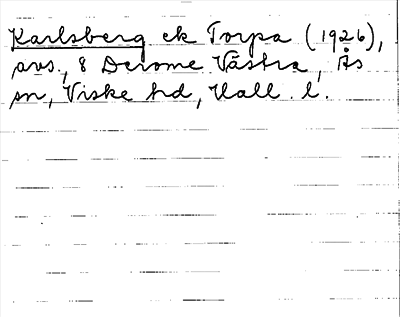 Karlsberg ek Torpa (1926),
avs., 8 Derome Västra, Ås
sn, Viske hd, Hall. l.